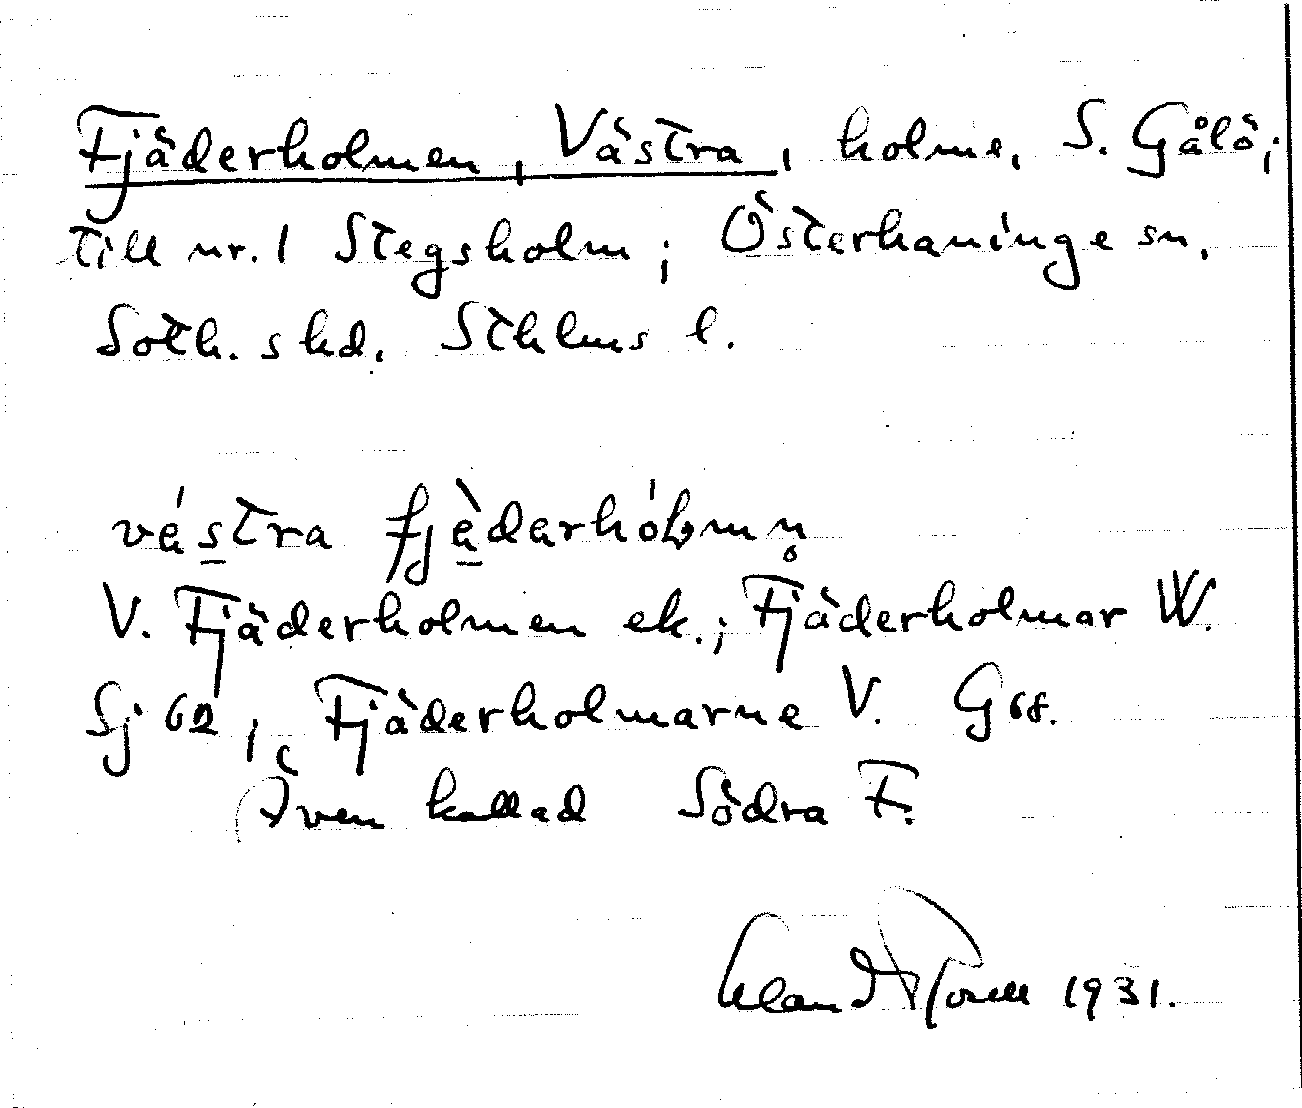 Fjäderholmen, Västra, holme, S. Gålö;
till nr. 1 Stegsholm; Österhaninge sn,
Soth. shd. Sthlms l.
västra fjäderhólmn̥
V. Fjäderholmen ek.; Fjäderholmar W.
Sj 62, Fjäderholmarne V. G 68.
Även kallad Södra F.
1931.